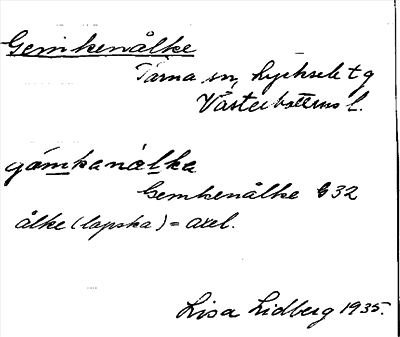 Gemkenålke
Tärna sn, Lycksele tg
Västerbottens l.
gämkanálka
Gemkenålke G32
ålke (lapska) = axel.
Lisa Lidberg 1935.